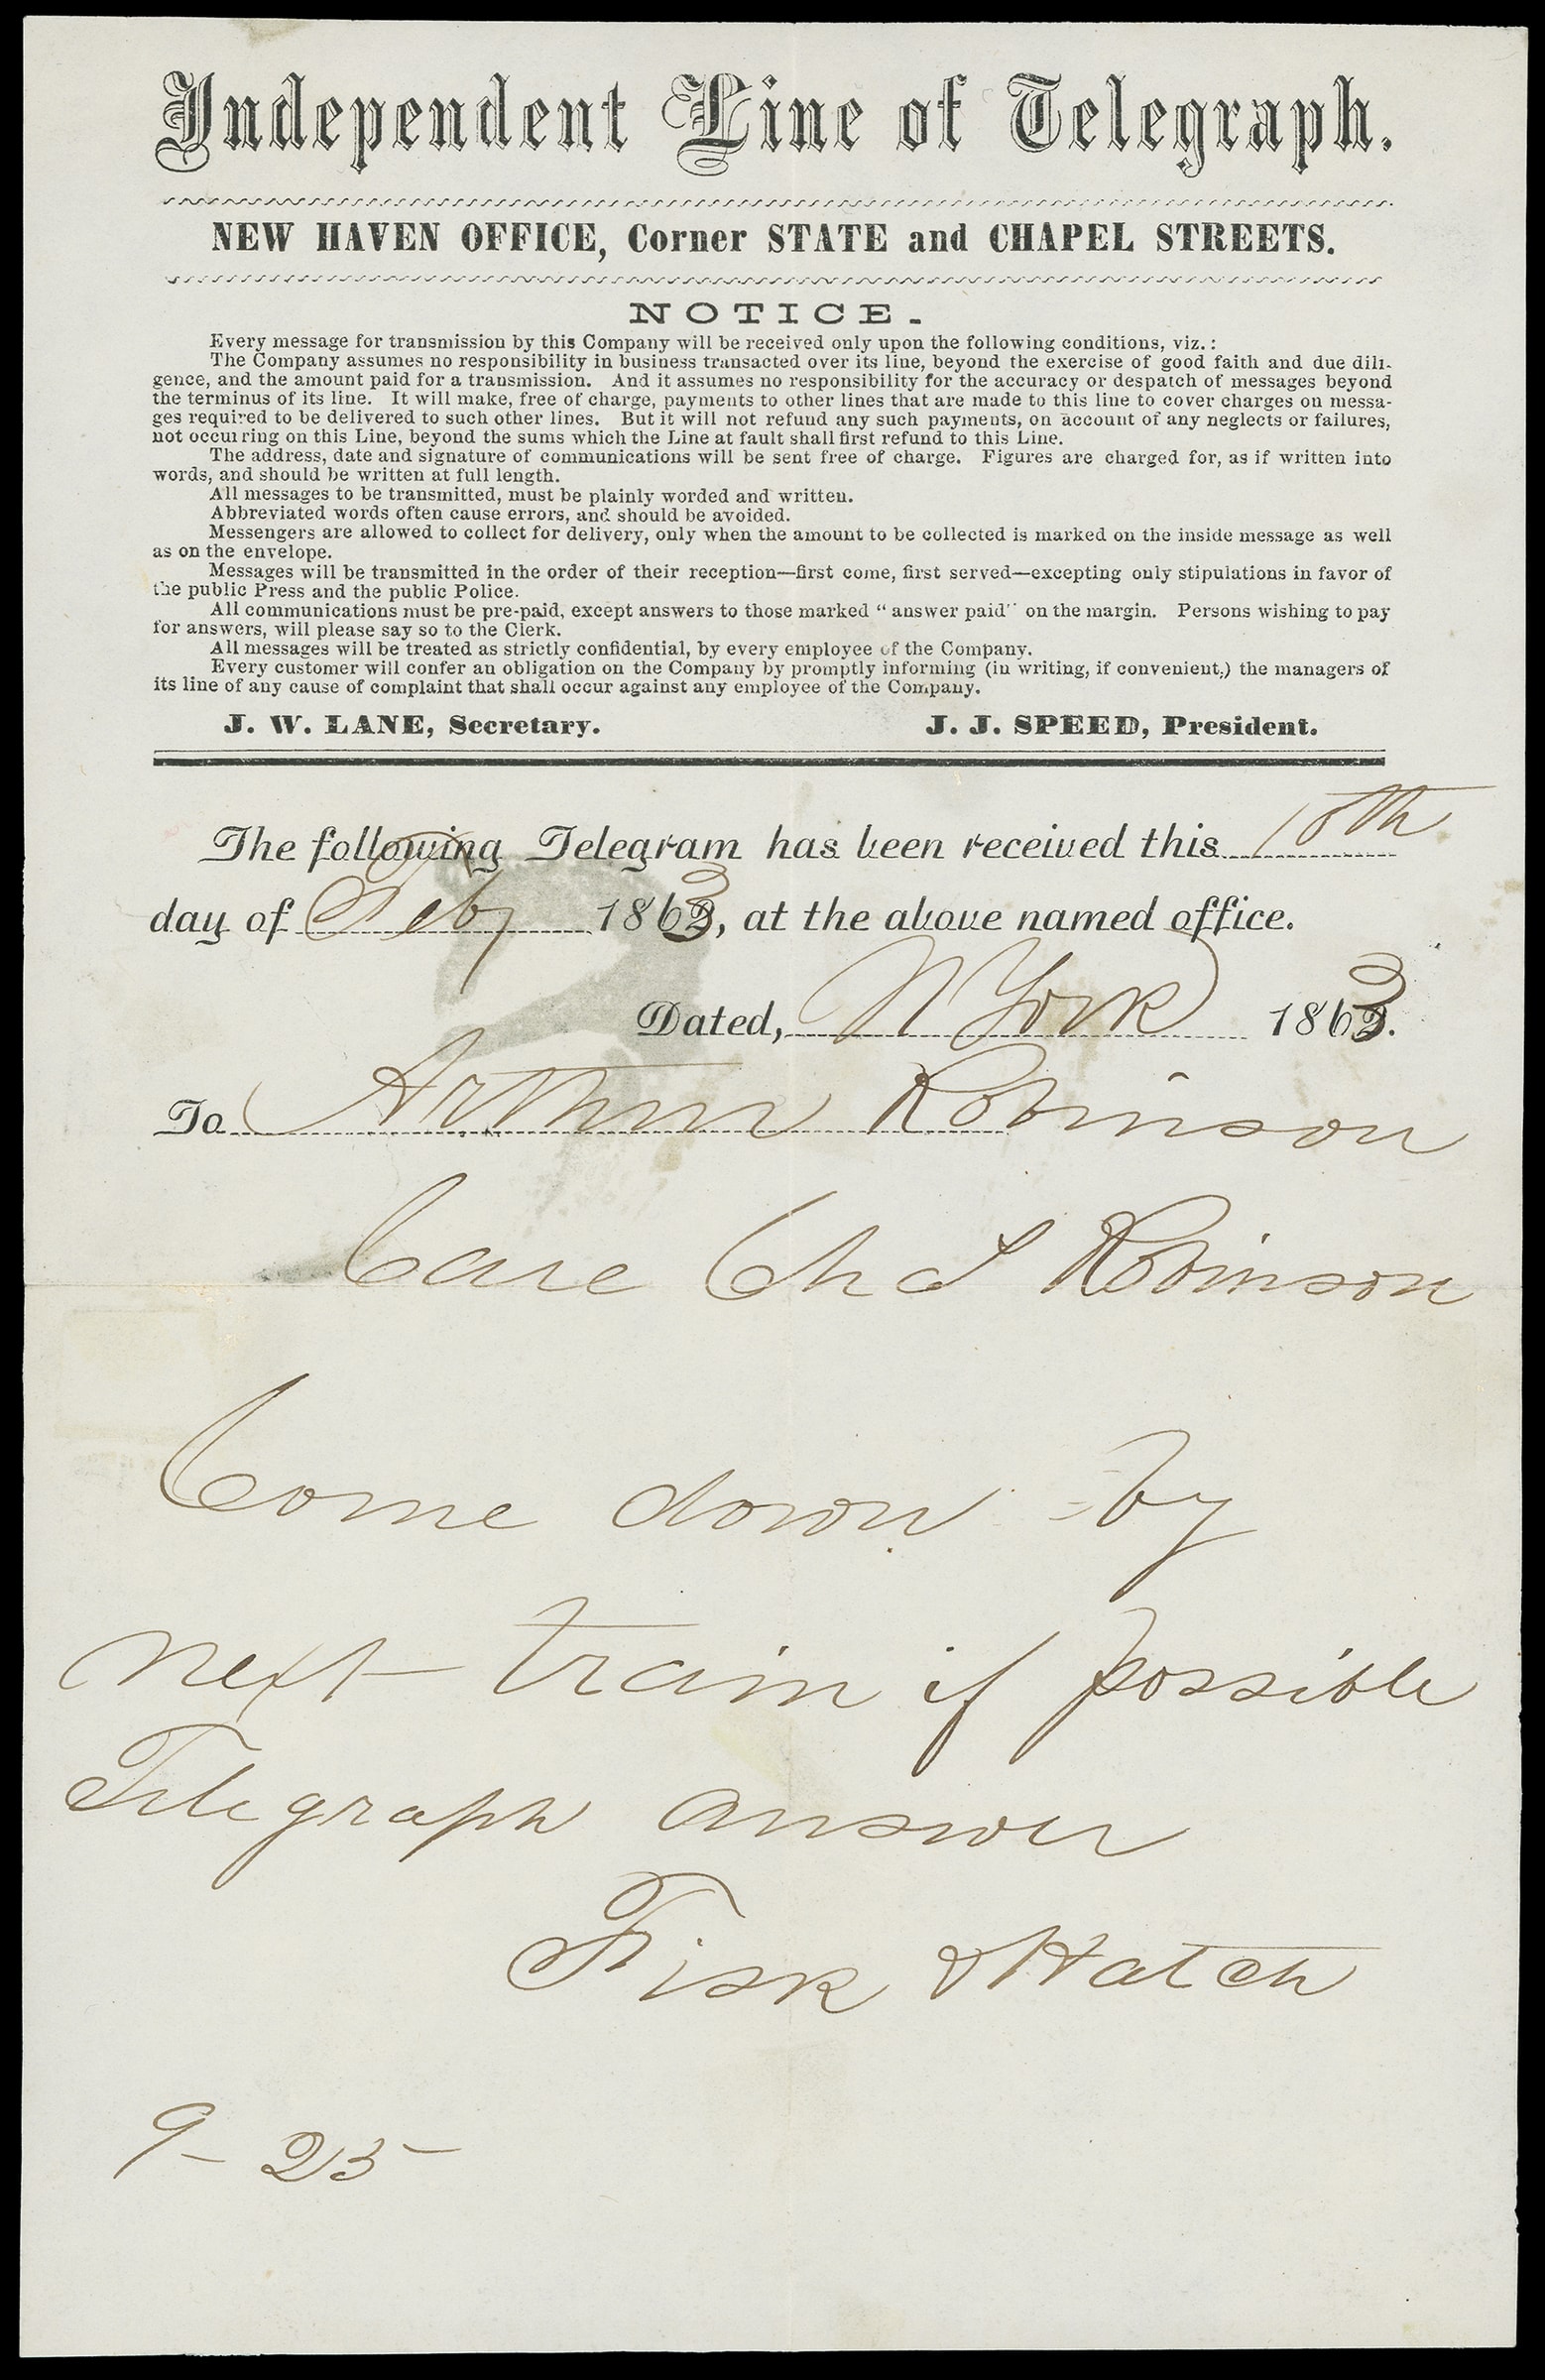 Independent Line of Telegraph.
NEW HAVEN OFFICE, Corner STATE and CHAPEL STREETS.
NOTICE.
Every message for transmission by this Company will be received only upon the following conditions, viz.:
The Company assumes no responsibility in business transacted over its line, beyond the exercise of good faith and due dili-
gence, and the amount paid for a transmission. And it assumes no responsibility for the accuracy or despatch of messages beyond
the terminus of its line. It will make, free of charge, payments to other lines that are made to this line to cover charges on messa-
ges required to be delivered to such other lines. But it will not refund any such payments, on account of any neglects or failures,
not occurring on this Line, beyond the sums which the Line at fault shall first refund to this Line.
The address, date and signature of communications will be sent free of charge. Figures are charged for, as if written into
words, and should be written at full length.
All messages to be transmitted, must be plainly worded and written.
Abbreviated words often cause errors, and should be avoided.
Messengers are allowed to collect for delivery, only when the amount to be collected is marked on the inside message as well
as on the envelope.
Messages will be transmitted in the order of their reception—first come, first served—excepting only stipulations in favor of
the public Press and the public Police.
All communications must be pre-paid, except answers to those marked "answer paid" on the margin. Persons wishing to pay
for answers, will please say so to the Clerk.
All messages will be treated as strictly confidential, by every employee of the Company.
Every customer will confer an obligation on the Company by promptly informing (in writing, if convenient,) the managers of
its line of any cause of complaint that shall occur against any employee of the Company.
J. W. LANE, Secretary. J. J. SPEED, President.
The following Telegram has been received this 18th
day of Feby 1863, at the above named office.
Dated, N York 1863.
To Arthur Robinson
Care Ch S Robinson
Come down by
next train if possible
Telegraph answer
Fisk & Hatch
9-25-